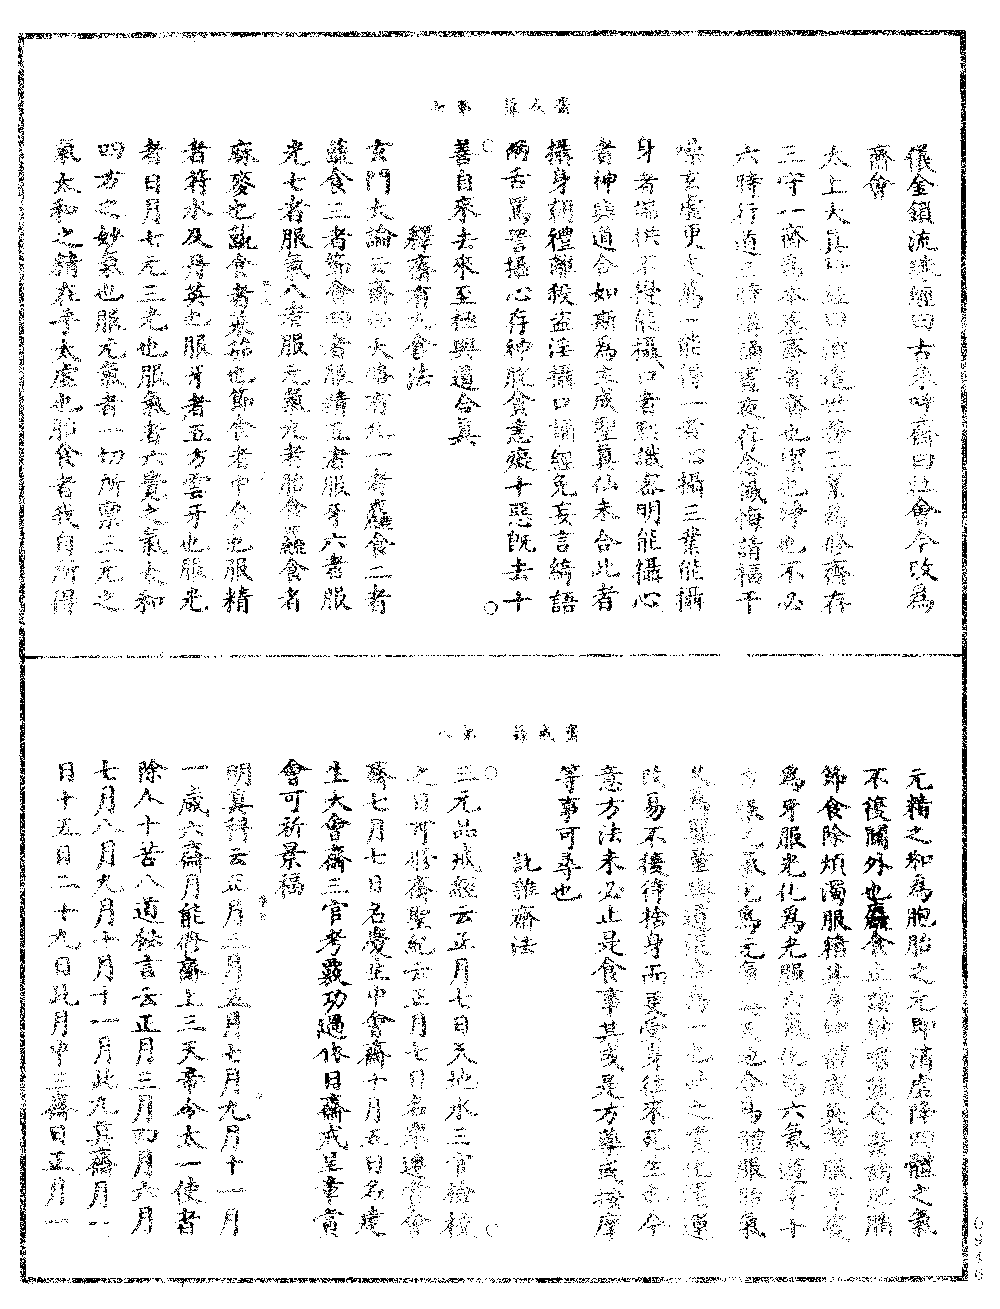 齋戒籙 第七
儀金鎖流珠經曰古來呼齋曰社會今改爲
齋會
太上大真科經曰消遣世務三業為勝齋存
三守一齋爲本基齋者齊也潔也淨也不必
六時行道三時講誦晝夜存念懺悔請福干
噪玄虛更失萬一能得一者心攝三業能攝
身者端拱不擾能攝口者默識都明能攝心
者神與道合如斯為主成聖真仙未合此者
攝身朝禮離殺盜淫攝口誦經免妄言綺語
兩舌罵詈攝心存神脫貪恚癡十惡既去十
善自來去來至極與道合真
釋齋有九食法
玄門大論云齋法大略有九一者麤食二者
蔬食三者節食四者服精五者服牙六者服
光七者服氣八者服元氣九者胎食麤食者
麻麥也蔬食者菜茹也節食者中食也服精
者符水及丹英也服牙者五方雲牙也服光
者日月七元三光也服氣者六覺之氣太和
四方之妙氣也服元氣者一切所禀三元之
氣太和之精在乎太虛也胎食者我自所得
齋戒籙 第八
元精之和為胞胎之元即清虛降四體之氣
不復關外也麤食止諸耽嗜蔬食棄諸肥腯
節食除煩濁服精其身神體成英帶服牙變
爲牙服光化為光服六氣化為六氣遊乎十
方服元氣化爲元氣與天地合爲體服胎氣
久爲嬰童與道混合爲一也此之變化運運
改易不復待捨身而更受身往來死生也今
意方法未必止是食事其或是方藥或按摩
等事可尋也
説雜齋法
三元品戒經云正月七日天地水三官檢校
之日可修齋聖紀云正月七日名舉遷賞會
齋七月七日名慶生中會齋十月五日名建
生大會齋三官考覈功過依日齋戒呈章賞
會可祈景福
明真科云正月三月五月七月九月十一月
一歲六齋月能修齋上三天帝令太一使者
除人十苦八道祕言云正月三月四月六月
七月八月九月十月十一月此九真齋月一
日十五日二十九日此月中三齋日正月一
0946